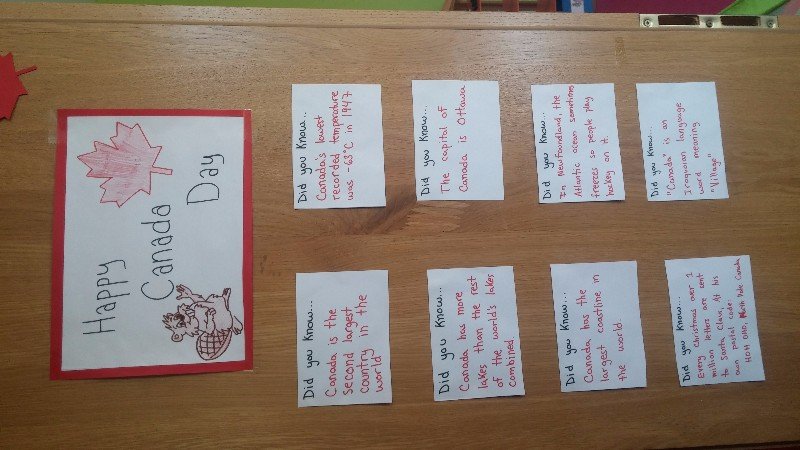 Happy
Canada
Day
Did you know...
Canada is the
second largest
country in the
world
Did you know...
Canada's lowest
recorded temperature
was -63°C in 1947
Did you know...
Canada has more
lakes than the rest
of the world's lakes
combined
Did you know...
The capital of
Canada is Ottawa
Did you know...
Canada has the
largest coastline in
the world.
Did you know...
In Newfoundland, the
Atlantic ocean sometimes
freezes so people play
hockey on it
Did you know...
Every Christmas over 1
million letters are sent
to Santa Claus, At his
own postal code:
HOH OHO, North Pole Canada
Did you know...
"Canada" is an
Iroquoian language
word meaning
"Village"